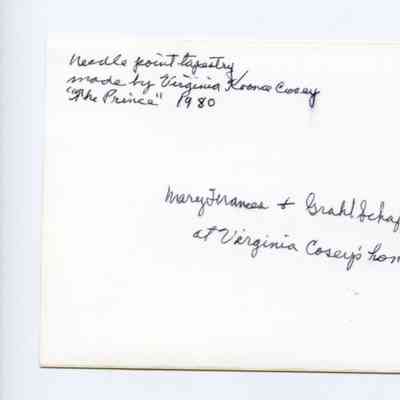 Needle point tapestry
made by Virginia Koonce Cosey
"The Prince" 1980
Mary Frances + Grahl Schaf
at Virginia Cosey's hom